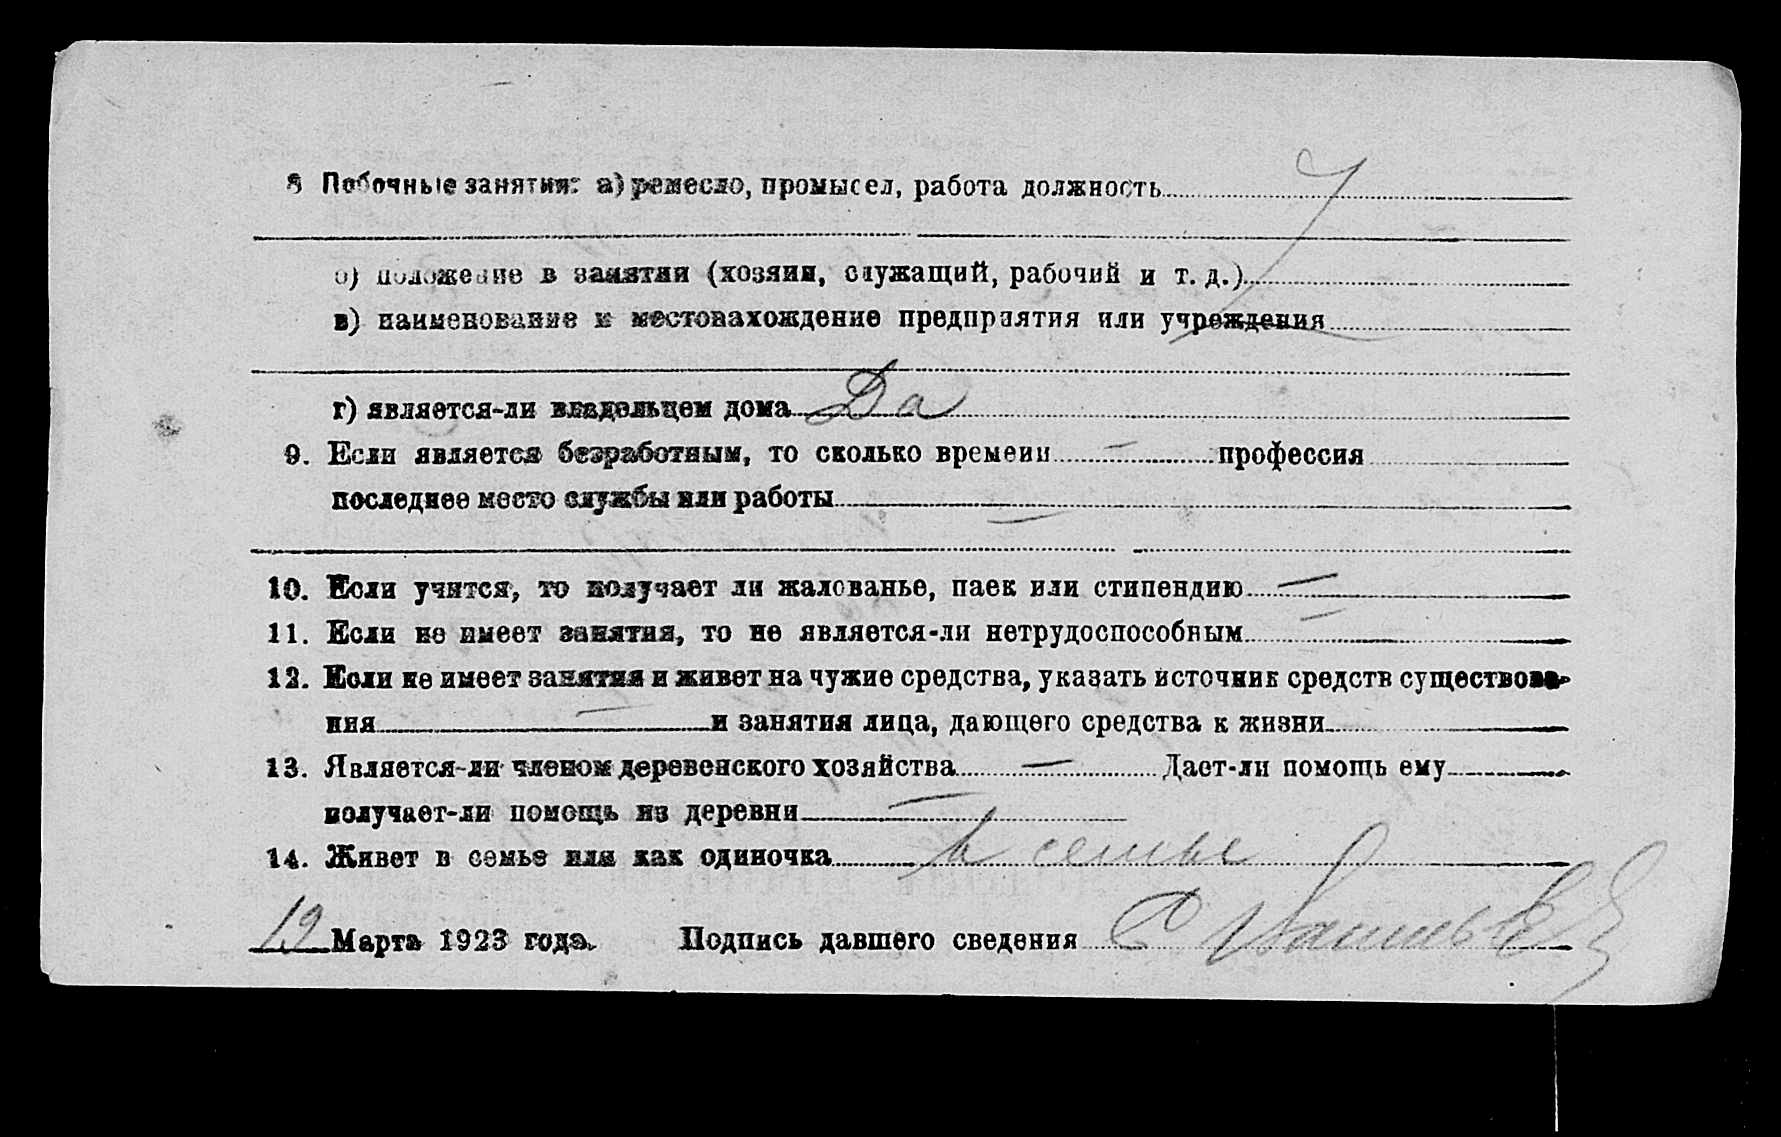 8 Побочные занятия: а) ремесло, промысел, работа должность
б) положение в занятии (хозяин, служащий, рабочий и т. д.)
в) наименование и местонахождение предприятия или учреждения
г) является-ли владельцем дома Да
9. Если является безработным, то сколько времени — профессия
последнее место службы или работы —
10. Если учится, то получает ли жалованье, паек или стипендию —
11. Если не имеет занятия, то не является-ли нетрудоспособным —
12. Если не имеет занятия и живет на чужие средства, указать источник средств существова-
ния — и занятия лица, дающего средства к жизни
13. Является-ли членом деревенского хозяйства — Дает-ли помощь ему
получает-ли помощь из деревни —
14. Живет в семье или как одиночка в семье
19 Марта 1923 года. Подпись давшего сведения